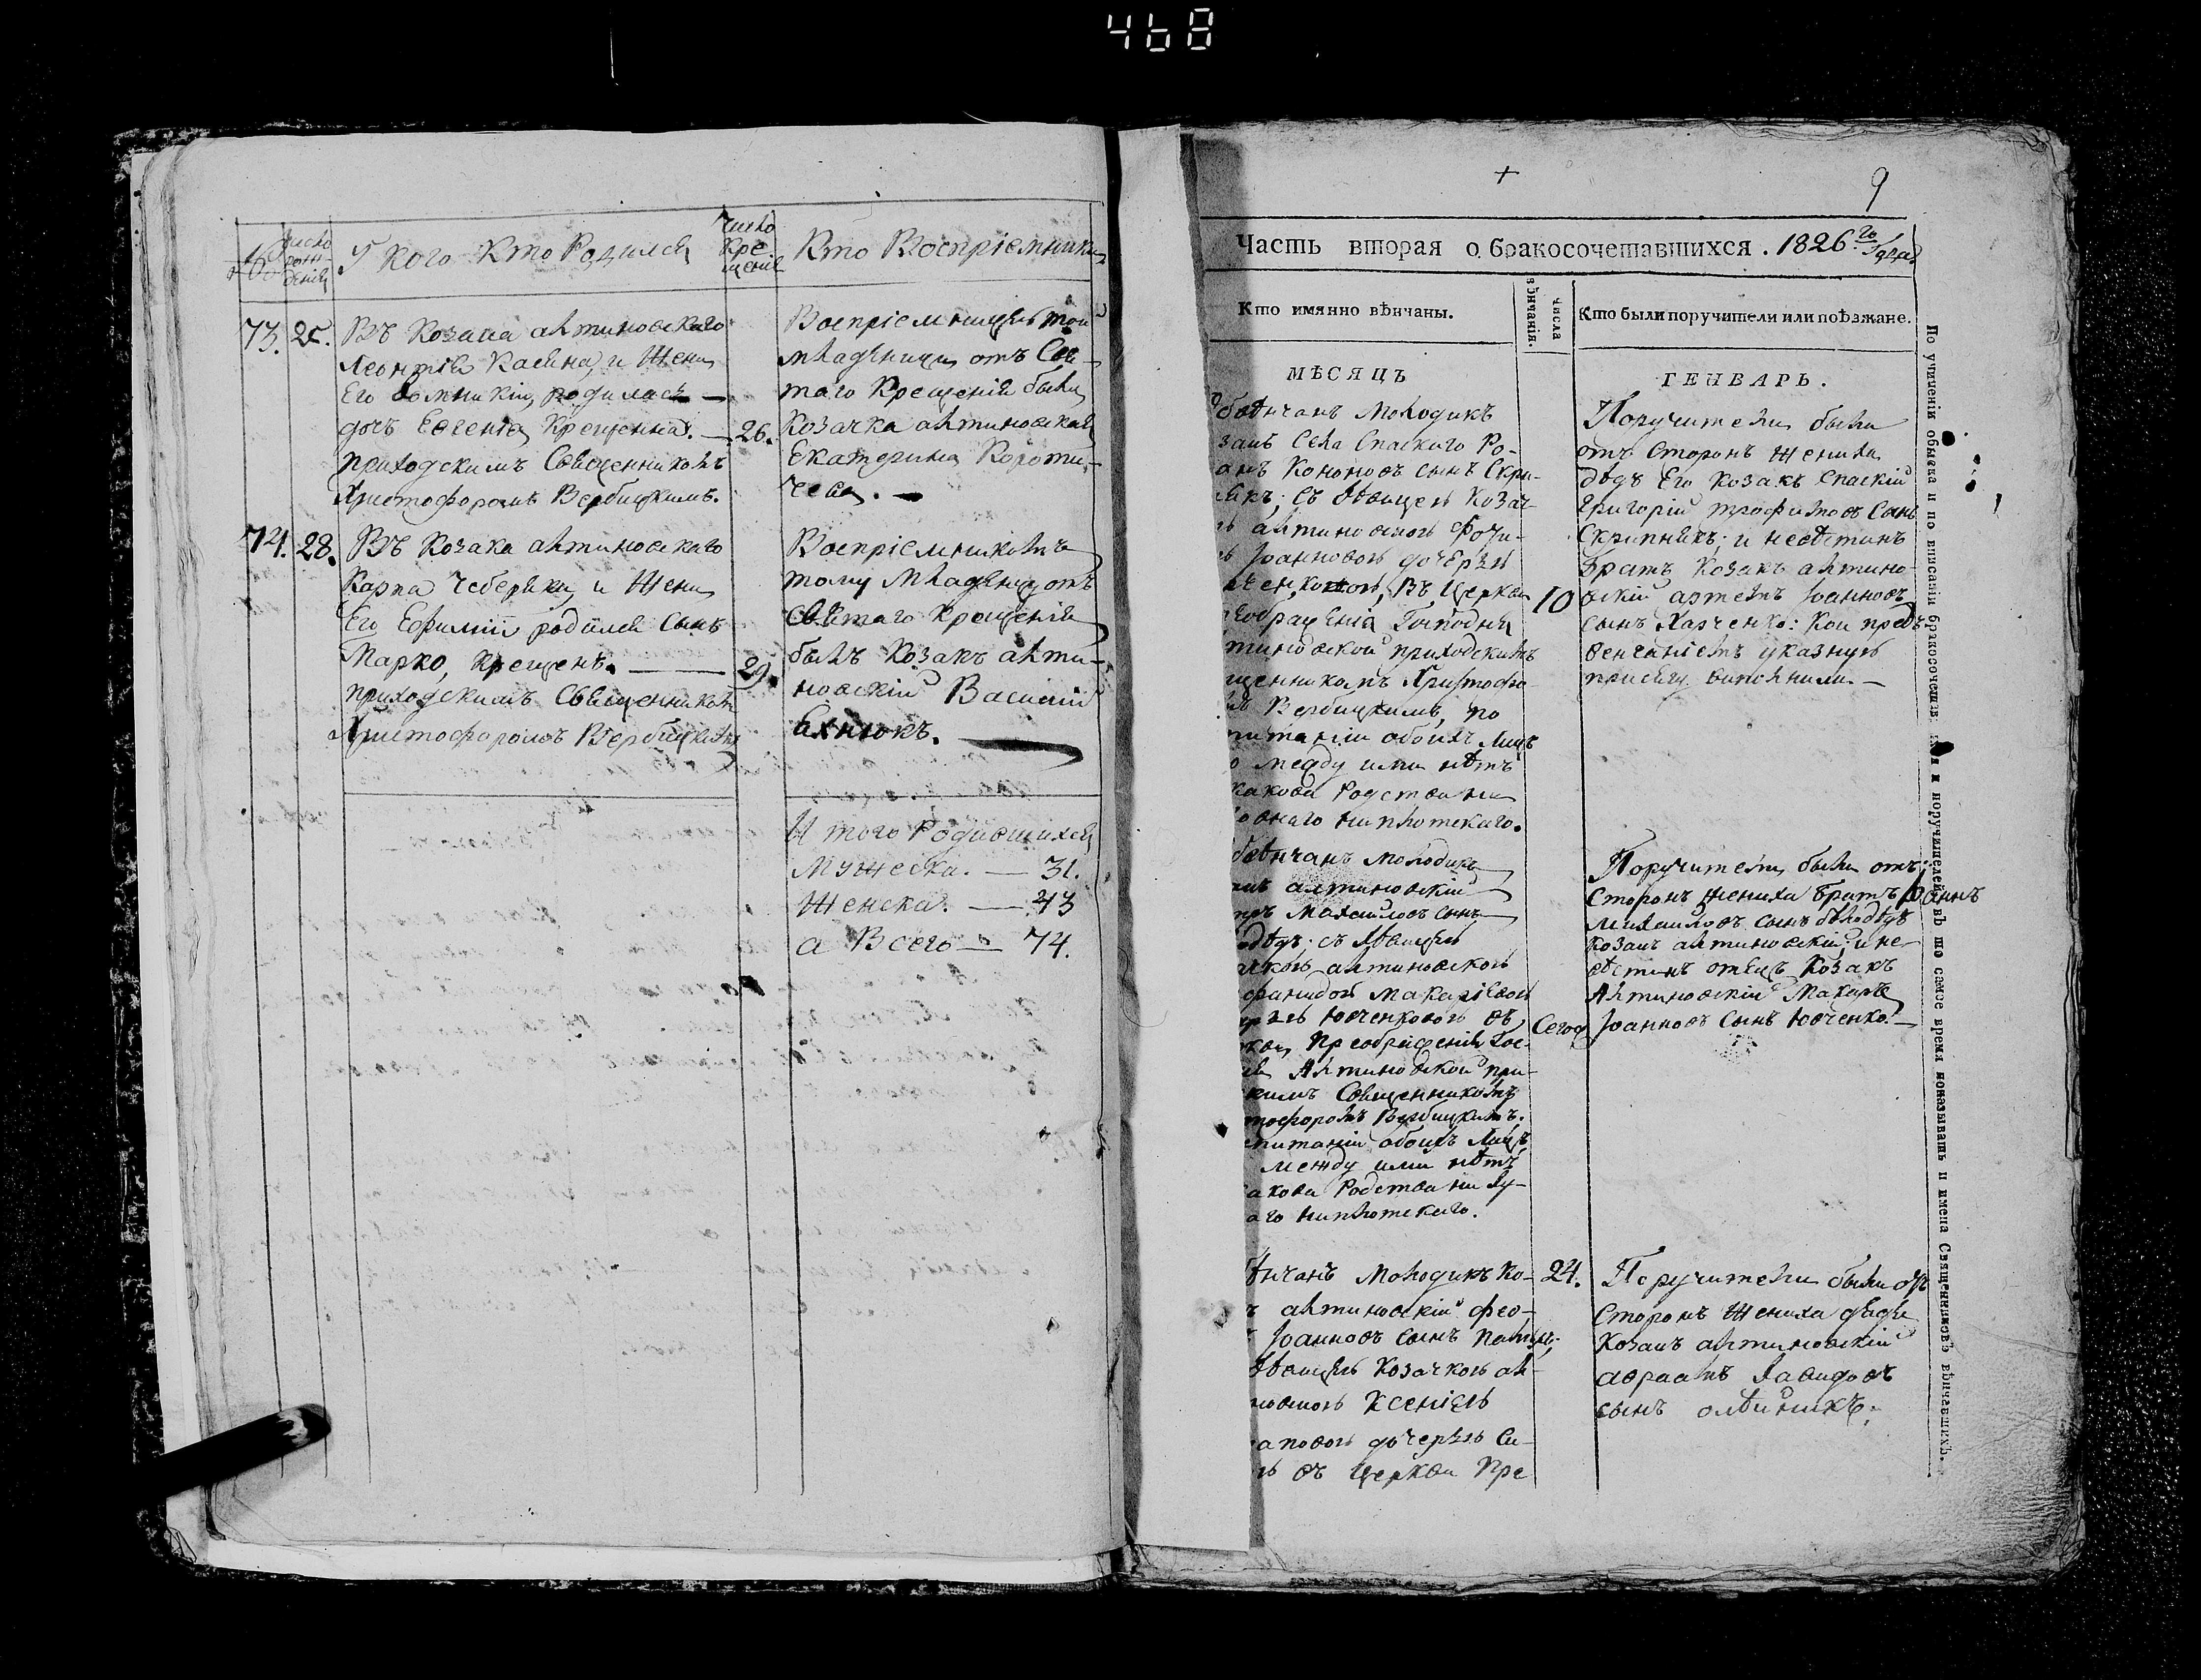 468
№
число рож-
дения
У кого кто Родился
число
кре
щения
Кто Воспріемники
73. 25. Въ Козака алтиновскаго
Леонтія и Жени
Его Домникіи, родилась —
дочь Евгенія Крещенна. — 26.
приходскимъ Священникомъ
Христофоромъ Вербицкимъ.
Воспріемницею той
младеници отъ Свя-
таго Крещенія были
Козачка алтиновская
Екатерина Короти-
чева. —
74. 28. Въ Козака алтиновскаго
Карпа Чеберяки и Жени
Его Ефиміи родился Сынъ
Марко, крещенъ. — 29.
приходскимъ Священникомъ
Христофоромъ Вербицкимъ
Воспріемникомъ
тому Младенцу отъ
Святаго Крещенія
былъ Козакъ алти-
новскій Василій
Бахнюкъ. —
И того Родившихся
Мужеска. — 31.
Женска. — 43
а Всего — 74.
+
9
Часть вторая о бракосочетавшихся. 1826.го Года
Кто имянно вѣнчаны.
числа
вѣнчанія.
Кто были поручители или поѣзжане.
МѢСЯЦЪ
ГЕНВАРЬ.
обвѣнчанъ Молодикъ
закъ Села Спаскаго Ро-
анъ Кононовъ сынъ Скри-
никъ; съ дѣвицею Козач-
ю алтиновскою Фоти-
ю Іоанновою дочерью
ченковою, Въ Церкви 10
реображенія Господня
тиновской приходскимъ
щенникомъ Христофо-
мъ Вербицкимъ, по
питаніи обоихъ лицъ
о между ими нѣтъ
какова Родства ни
ховнаго ни плотскаго.
Поручители были
отъ Сторонъ жениха
дядъ Его козакъ Спаскій
Григорій Трофимовъ Сынъ
Скрипникъ; и невѣстинъ
братъ Козакъ алтино-
вскій артемъ Іоанновъ
сынъ Харченко: Кои предъ
венчаніемъ указную
присягу виполнили. —
бвѣнчанъ молодикъ
акъ алтиновскій
Михаиловъ сынъ
лодѣдъ; съ дѣвицею
ачкою алтиновскою
фанидой Макаріевою
ерью Ювченковою въ Сегож
ркви Преображенія Гос-
ня Алтиновской при-
кимъ Священникомъ
тофоромъ Вербицкимъ.
спитаніи обоихъ Лицъ
между ими нѣтъ
акова Родства ни ду-
аго ни плотскаго.
Поручители были отъ
Сторонъ жениха братъ Іоаннъ
Михаиловъ сынъ бѣлодѣдъ
козакъ алтиновскій, и не-
вѣстинъ отецъ Козакъ
Алтиновскій Макаръ
Іоанновъ Сынъ Ювченко. —
ѣнчанъ Молодикъ Ко- 24.
ъ алтиновскій Фео-
Іоанновъ сынъ
дѣвицею Козачкою ал-
новскою Ксеніею
аповою дочерью Си-
ю въ Церкви Пре
Поручители были отъ
Сторонъ Жениха дядя
Козакъ алтиновскій
аврамъ Давидовъ
сынъ олѣйникъ;
По учиненіи обыска и по вписаніи бракосочетав. ся и поручителей въ то самое время показывать и имена Священниковъ вѣнчавшихъ.